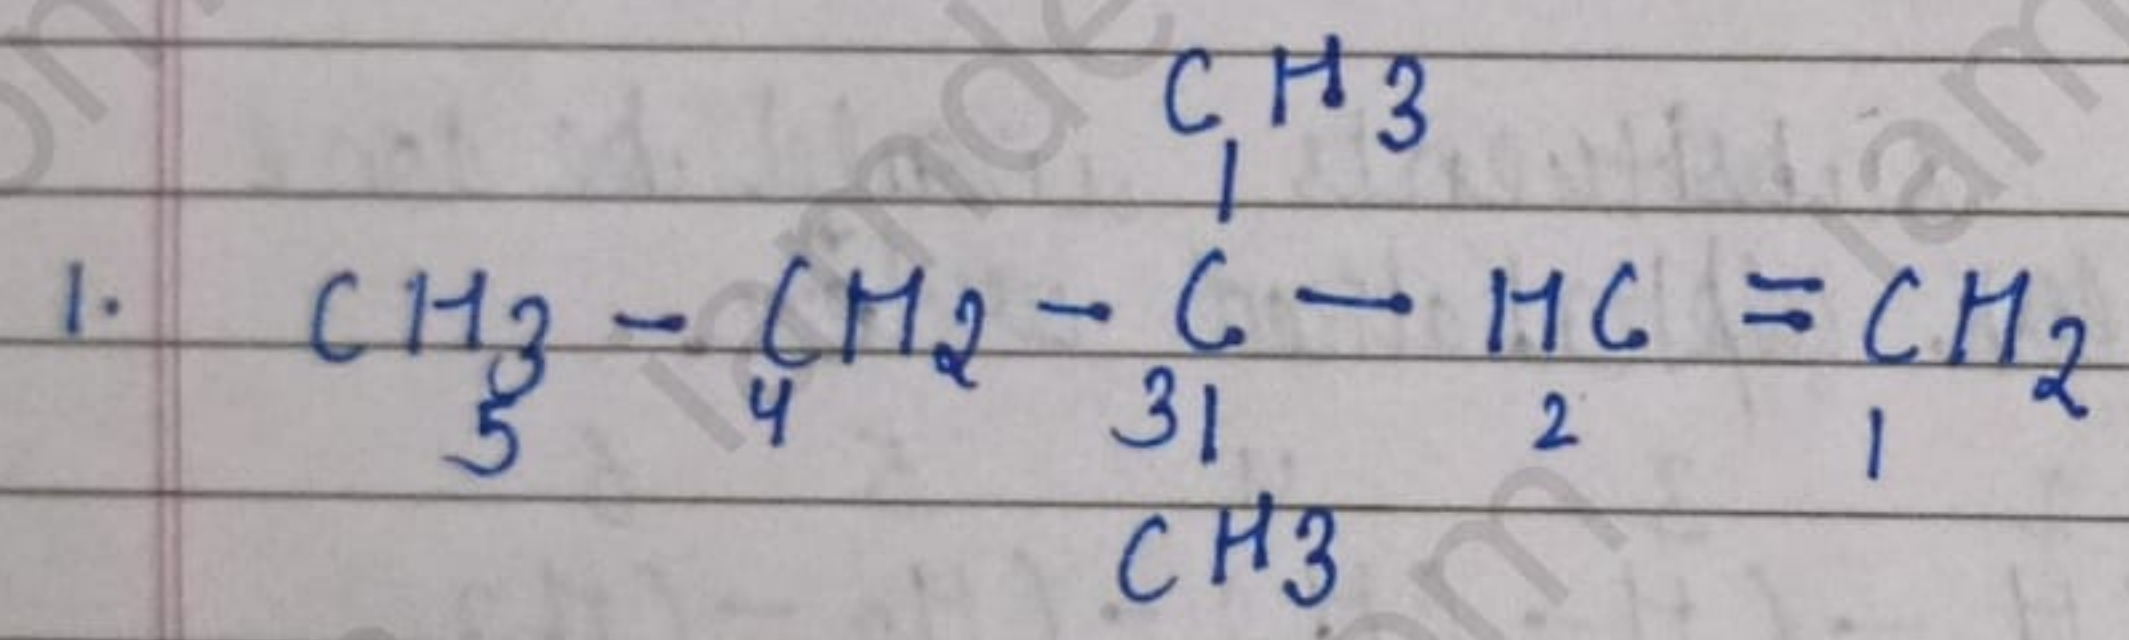 CH3
|
1. CH3 - CH2 - C - HC = CH2
5 4 3 | 2 1
CH3